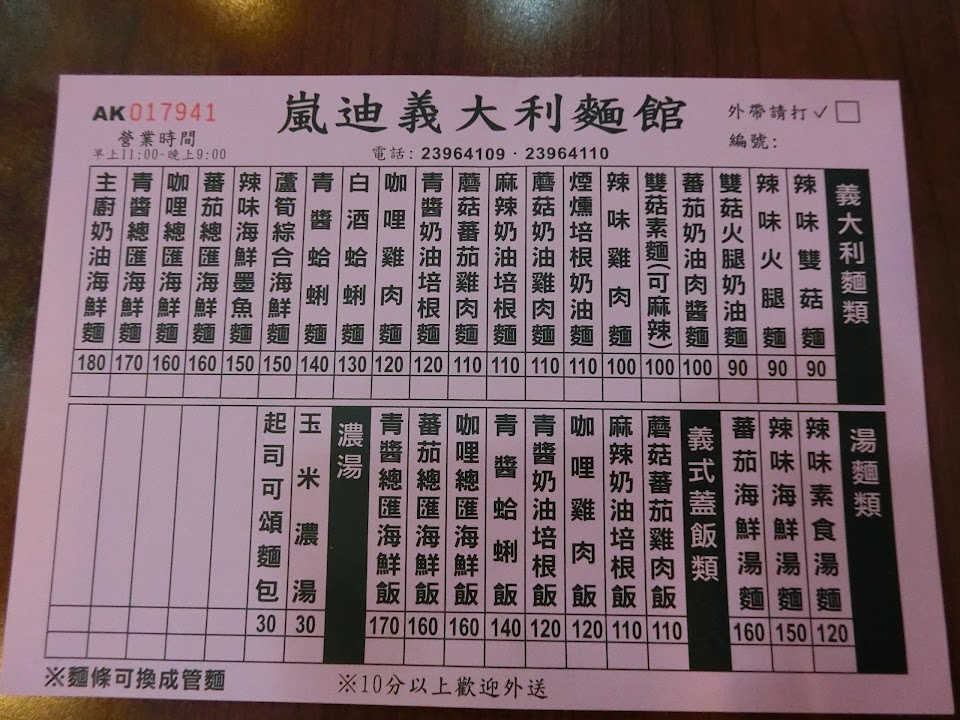 AK 017941
嵐迪義大利麵館
外帶請打✓□
營業時間
早上11:00~晚上9:00
電話: 23964109 · 23964110
編號:
義大利麵類
辣味雙菇麵 90
辣味火腿麵 90
雙菇火腿奶油麵 90
蕃茄奶油肉醬麵 100
雙菇素麵(可麻辣) 100
辣味雞肉麵 100
煙燻培根奶油麵 110
蘑菇奶油雞肉麵 110
麻辣奶油培根麵 110
蘑菇蕃茄雞肉麵 110
青醬奶油培根麵 120
咖哩雞肉麵 120
白酒蛤蜊麵 130
青醬蛤蜊麵 140
蘆筍綜合海鮮麵 150
辣味海鮮墨魚麵 150
蕃茄總匯海鮮麵 160
咖哩總匯海鮮麵 160
青醬總匯海鮮麵 170
主廚奶油海鮮麵 180
湯麵類
辣味素食湯麵 120
辣味海鮮湯麵 150
蕃茄海鮮湯麵 160
義式蓋飯類
蘑菇蕃茄雞肉飯 110
麻辣奶油培根飯 110
咖哩雞肉飯 120
青醬奶油培根飯 120
青醬蛤蜊飯 140
咖哩總匯海鮮飯 160
蕃茄總匯海鮮飯 160
青醬總匯海鮮飯 170
濃湯
玉米濃湯 30
起司可頌麵包 30
※麵條可換成管麵
※10分以上歡迎外送